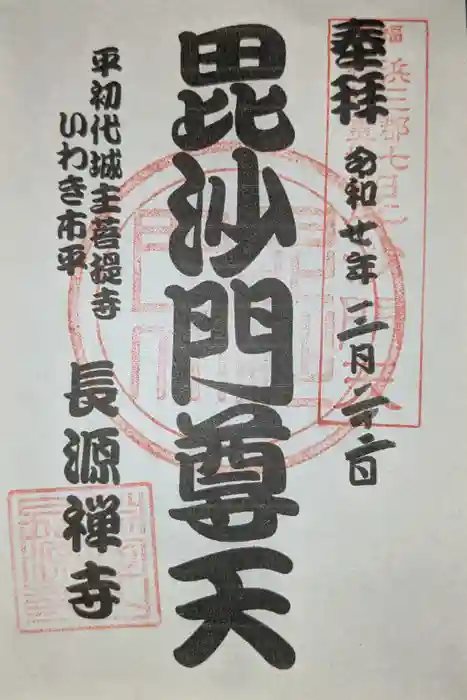 奉拝
令和七年三月日
浜三郡七
毘沙門尊天
平初代城主菩提寺
いわき市平
長源禅寺